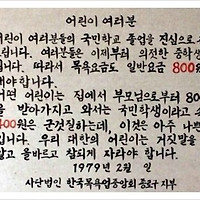 어린이 여러분
어린이 여러분들의 국민학교 졸업을 진심으로
니다. 여러분들은 이제부터 의젓한 중학생
니다. 따라서 목욕요금도 일반요금 800원
야 합니다.
어떤 어린이는 집에서 부모님으로부터 80
을 받아가지고 와서는 국민학생이라고
400원은 군것질하는데, 이것은 아주 나쁜
입니다. 우리 대한의 어린이는 거짓말을
않고 올바르고 참되게 자라야 합니다.
1979년 2월 일
사단법인 한국목욕업중앙회 종로구 지부